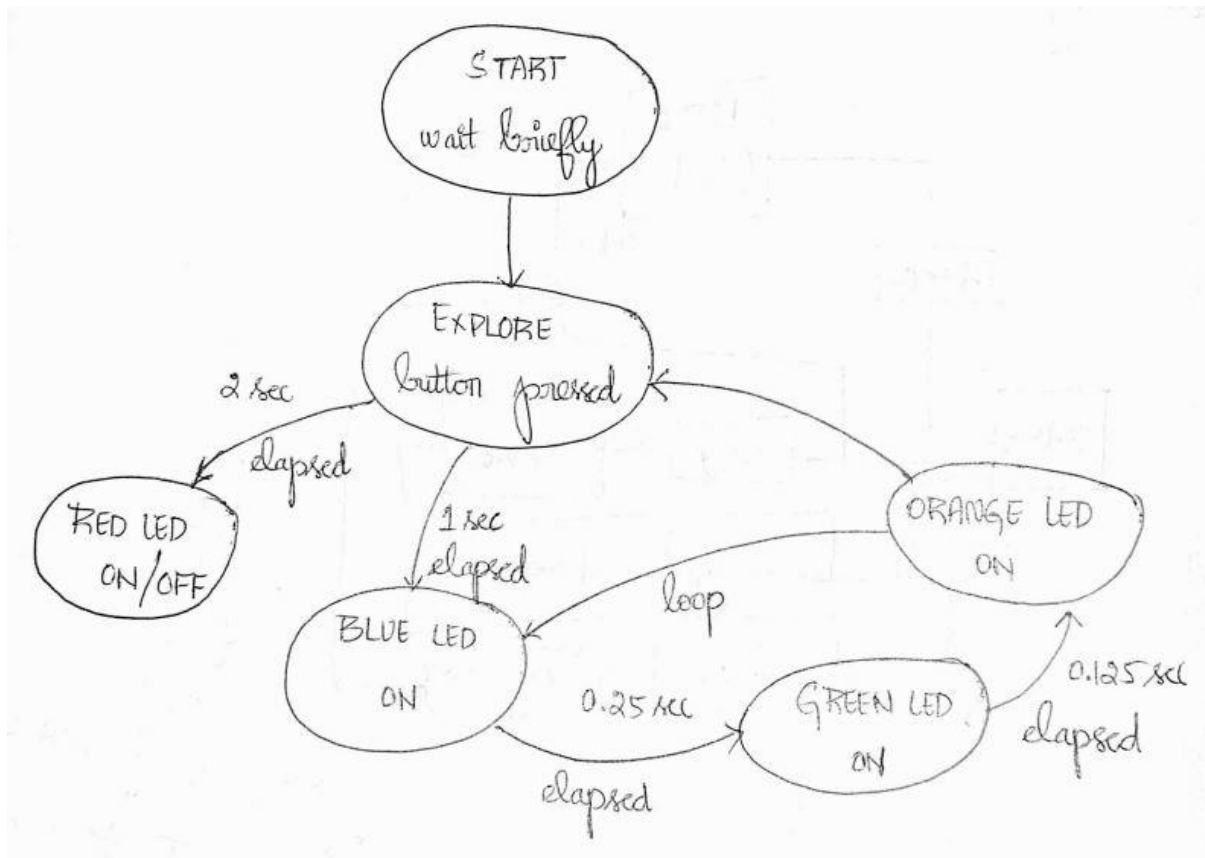 START
wait briefly
EXPLORE
button pressed
2 sec
elapsed
RED LED
ON/OFF
1 sec
elapsed
ORANGE LED
ON
loop
BLUE LED
ON
0.25 sec
elapsed
GREEN LED
ON
0.125 sec
elapsed